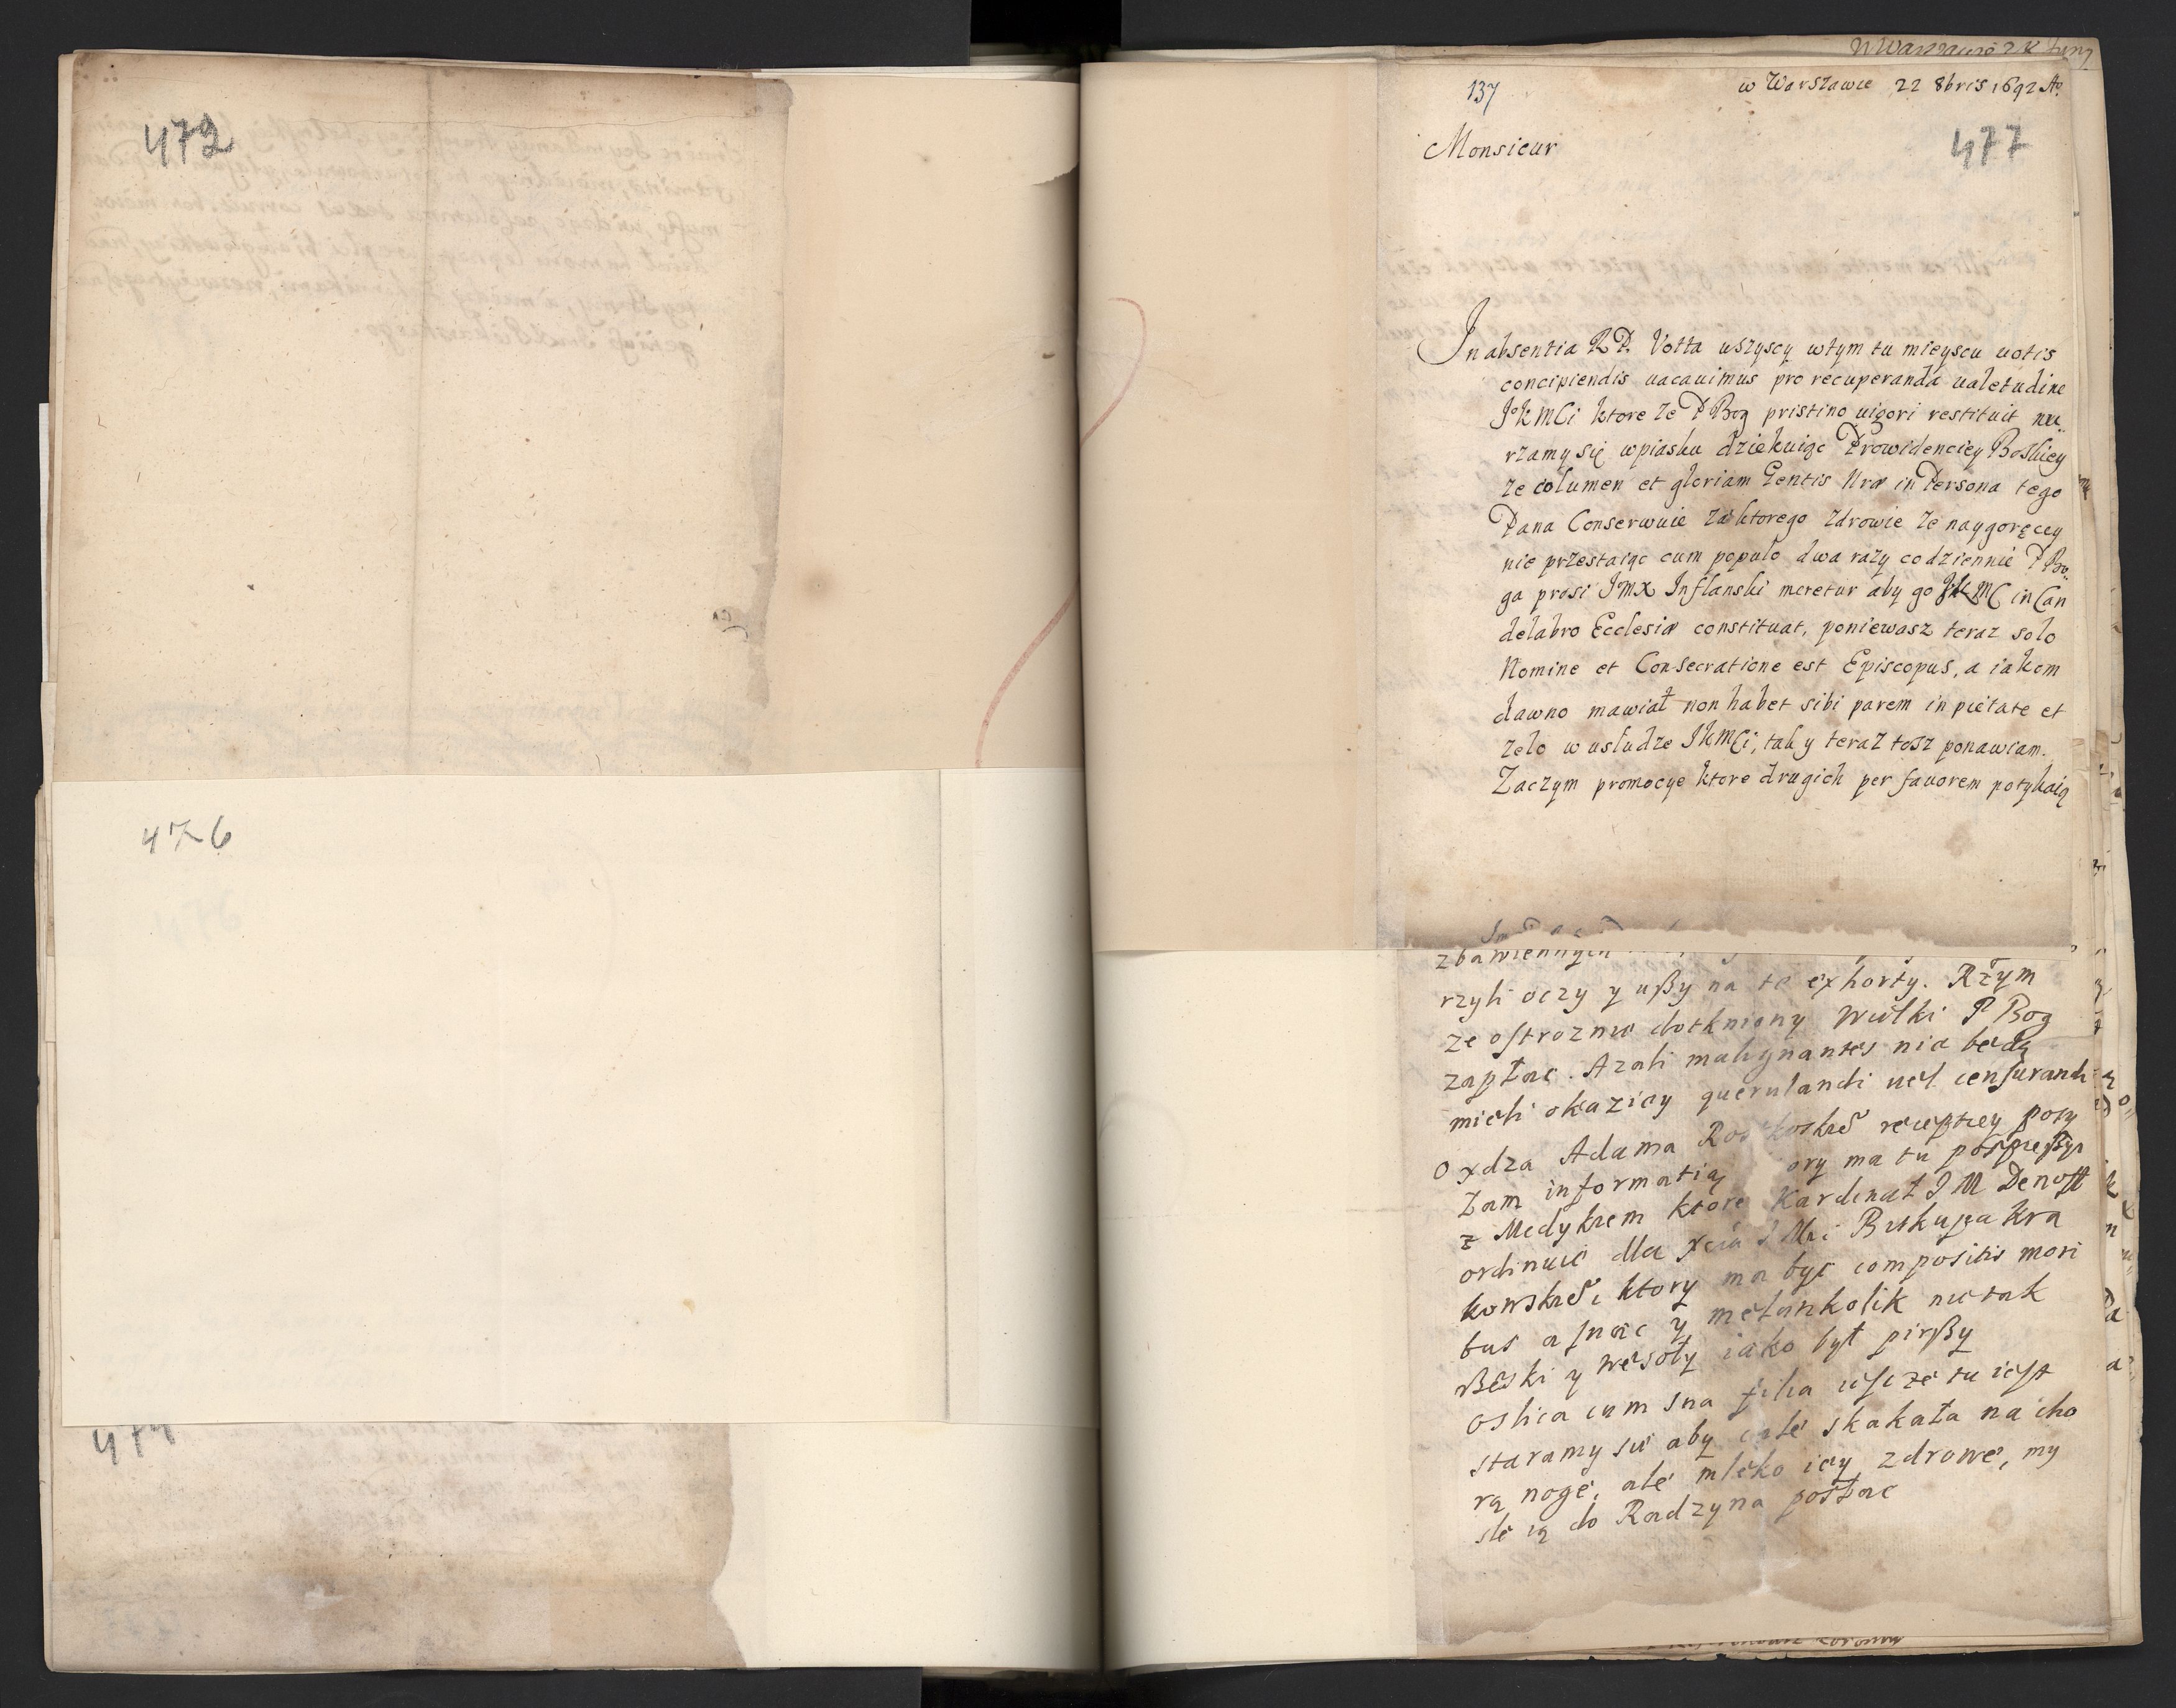 472
476
137
w Warszawie 22 8bris 1692 Ao.
477
Monsieur
In absentia R P. Votta uszyscy wtym tu mieyscu uotis
concipiendis uacauimus pro recuperanda ualetudine
JoKMCi ktore ze P Bog pristino uigori restituit nu„
rzamy się wpiasku dziekuiąc Prowidenciey Boskiey
ze columen et gloriam Gentis Nræ in Persona tego
Pana Conserwuie Za ktorego Zdrowie Ze naygoręcey
nie przestaiąc cum populo dwa razy codziennie P Bo„
ga prosi JMX Inflanski meretur aby go JKMC in Can
delabro Ecclesiæ constituat, poniewasz teraz solo
Nomine et Consecratione est Episcopus, a iakom
dawno mawiał non habet sibi parem in pietate et
Zelo w usłudze JKMCi, tak y teraz tosz ponawiam.
Zaczym promocye ktore drugich per fauorem potykaią
rzyli oczy y ußy na te exhorty. Rzym
ze ostroznie dotkniony Wielki P Bog
zapłac. Azali malignantes nie będą
mieli okaziey querulandi uel censurandi
O xdza Adama recepcyey
łam informatią ma tu
z Medykiem ktore Kardinał J M Denoff
ordinuie dla Xcia J Mci Biskupa Kra
ktory ma byc compositis mori
bus a snac y melankolik nie tak
y wesoły iako był pirßy
Oslica cum sua filia iesze tu iest
staramy sie aby skakała na cho
rą nogę, ale mleko iey zdrowe, my
sle ią do Radzyna posłac